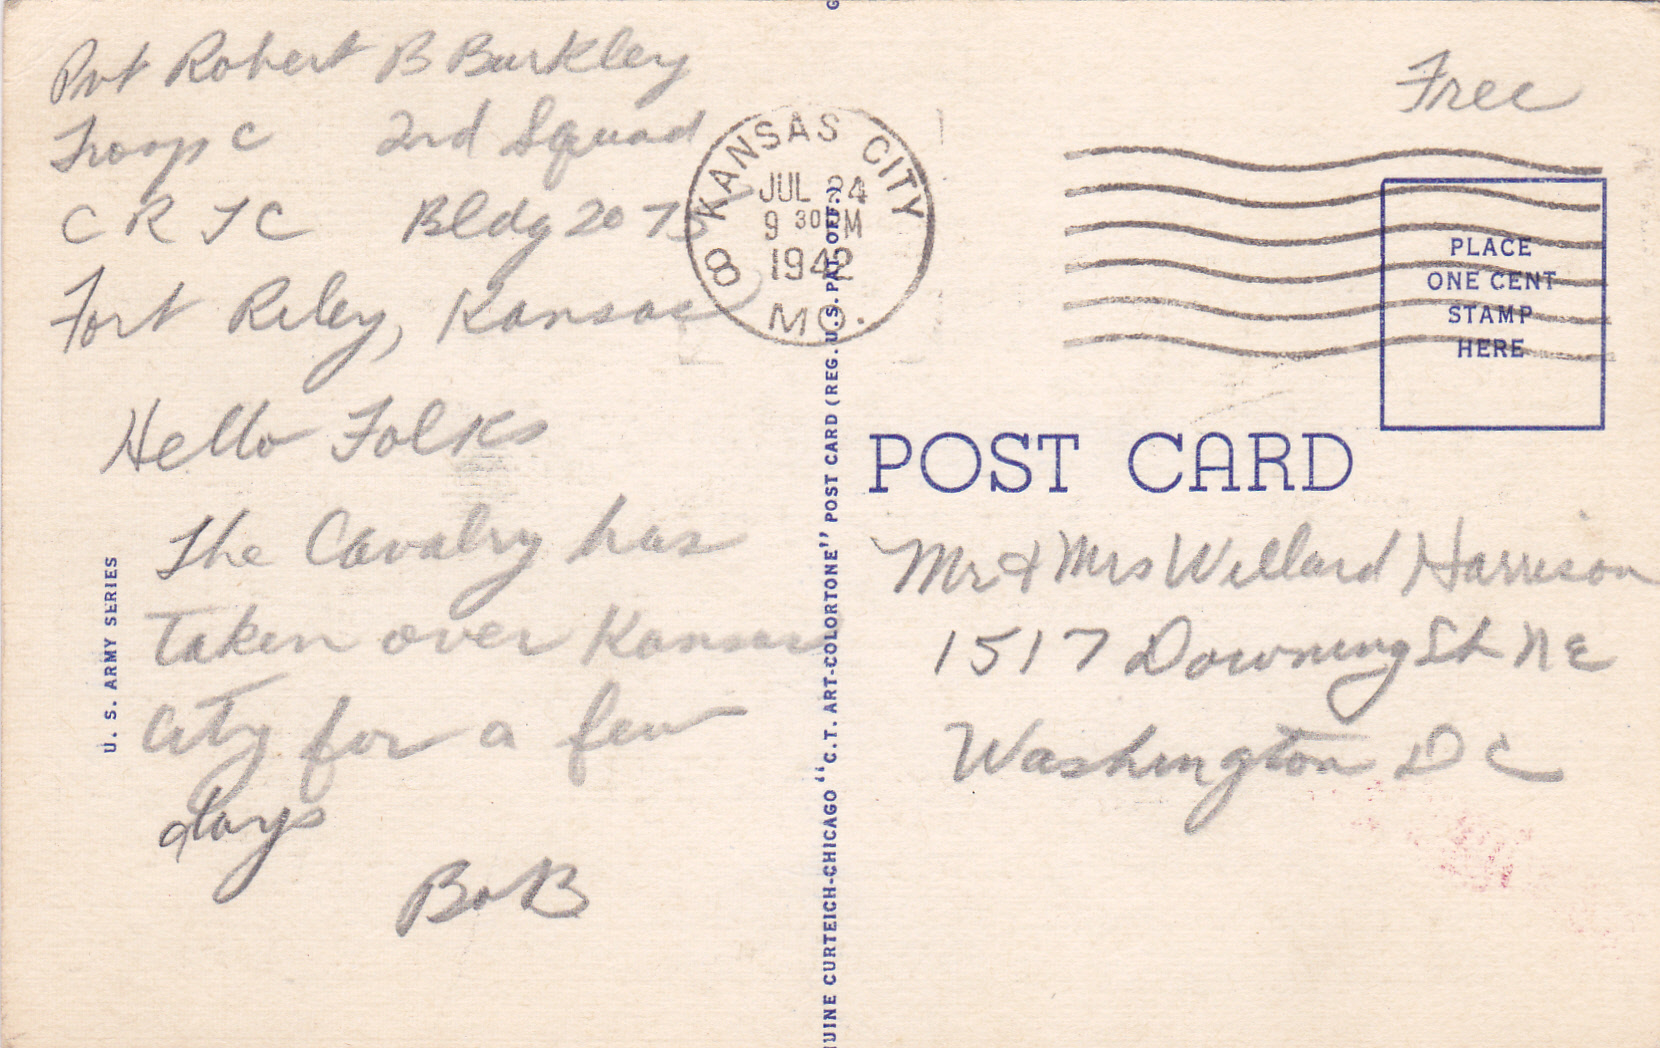 Pvt Robert B Burkley
Troop C 2nd Squad
C R T C Bldg 2075
Fort Riley, Kansas
Hello Folks
The Cavalry has
taken over Kansas
City for a few
days
BoB
U. S. ARMY SERIES
G
UINE CURTEICH-CHICAGO "C.T. ART-COLORTONE" POST CARD (REG. U.S. PAT. OFF.)
KANSAS CITY
JUL 24
9 30 PM
1942
MO.
8
Free
PLACE
ONE CENT
STAMP
HERE
POST CARD
Mr & Mrs Willard Harrison
1517 Downing St NE
Washington D C